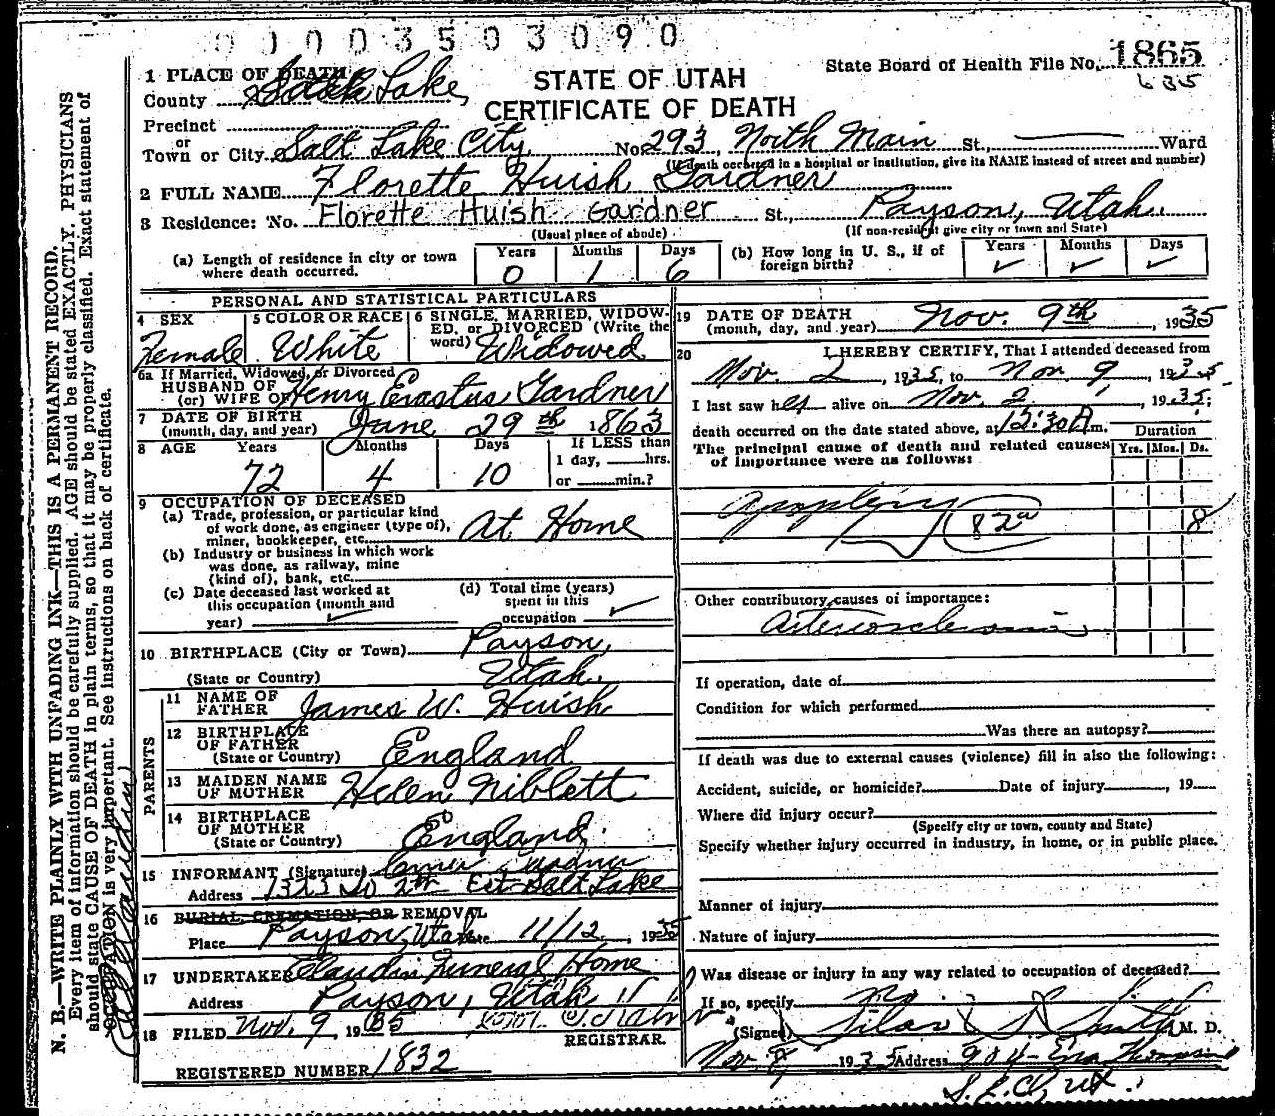 0 0 0 0 3 5 0 3 0 9 0
State Board of Health File No. 1865
635
STATE OF UTAH
CERTIFICATE OF DEATH
1 PLACE OF DEATH
County Salt Lake
Precinct
or
Town or City Salt Lake City No. 293 North Main St., Ward
(If death occurred in a hospital or institution, give its NAME instead of street and number)
2 FULL NAME Florette Huish Gardner
3 Residence: No. Florette Huish Gardner St., Payson, Utah.
(Usual place of abode) (If non-resident give city or town and State)
(a) Length of residence in city or town where death occurred. Years 0 Months 1 Days 6
(b) How long in U. S., if of foreign birth? Years ✓ Months ✓ Days ✓
PERSONAL AND STATISTICAL PARTICULARS
4 SEX Female
5 COLOR OR RACE White
6 SINGLE, MARRIED, WIDOWED, or DIVORCED (Write the word) Widowed
6a If Married, Widowed, or Divorced
HUSBAND OF
(or) WIFE OF Henry Erastus Gardner
7 DATE OF BIRTH
(month, day, and year) June 29th 1863
8 AGE Years 72 Months 4 Days 10
If LESS than
1 day, hrs.
or min.?
9 OCCUPATION OF DECEASED
(a) Trade, profession, or particular kind
of work done, as engineer (type of),
miner, bookkeeper, etc. At Home
(b) Industry or business in which work
was done, as railway, mine
(kind of), bank, etc.
(c) Date deceased last worked at
this occupation (month and
year) ✓
(d) Total time (years)
spent in this
occupation ✓
10 BIRTHPLACE (City or Town) Payson,
(State or Country) Utah.
PARENTS
11 NAME OF
FATHER James W. Huish
12 BIRTHPLACE
OF FATHER
(State or Country) England
13 MAIDEN NAME
OF MOTHER Helen Niblett
14 BIRTHPLACE
OF MOTHER
(State or Country) England.
15 INFORMANT (Signature) Gardner
Address 1323 So 2nd East Salt Lake
16 BURIAL, CREMATION, OR REMOVAL
Place Payson, Utah Date 11/12, 1935
17 UNDERTAKER Claudin Funeral Home
Address Payson, Utah
18 FILED Nov. 9 1935
REGISTRAR.
REGISTERED NUMBER 1832
19 DATE OF DEATH
(month, day, and year) Nov. 9th, 1935
20 I HEREBY CERTIFY, That I attended deceased from
Nov. 2, 1935, to Nov 9, 1935
I last saw her alive on Nov. 2, 1935;
death occurred on the date stated above, at 12:30 A m.
The principal cause of death and related causes
of importance were as follows:
Duration
Yrs. Mos. Ds.
Apoplexy 82a 8
Other contributory causes of importance:
Arteriosclerosis
If operation, date of
Condition for which performed
Was there an autopsy?
If death was due to external causes (violence) fill in also the following:
Accident, suicide, or homicide? Date of injury, 19
Where did injury occur?
(Specify city or town, county and State)
Specify whether injury occurred in industry, in home, or in public place.
Manner of injury
Nature of injury
Was disease or injury in any way related to occupation of deceased?
If so, specify no
(Signed) Silas Smith M. D.
Nov 9, 1935 Address 904
S. L. City, Ut.
N. B.—WRITE PLAINLY WITH UNFADING INK—THIS IS A PERMANENT RECORD.
Every item of information should be carefully supplied. AGE should be stated EXACTLY. PHYSICIANS
should state CAUSE OF DEATH in plain terms, so that it may be properly classified. Exact statement of
OCCUPATION is very important. See instructions on back of certificate.